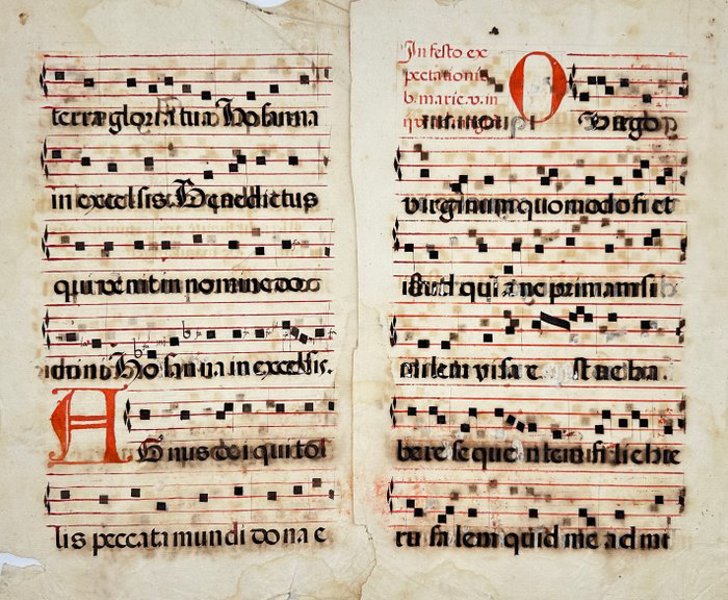 terræ gloria tua Hosanna
in excelsis. Benedictus
qui venit in nomine do
Hosanna in excelsis.
AGnus dei qui tol
lis peccata mundi dona e
In festo ex
pectationis
b. marie. v. in
O Virgo
virginum quomodo fiet
istud quia ne primam si
milem visa e st ne ha.
bere sequentem filie hie
rusalem quid me admi